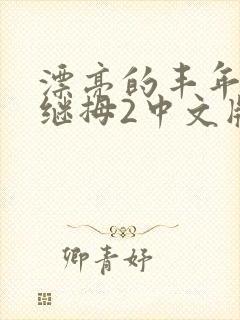 漂亮的丰年
继拇2中文版
卿青妤